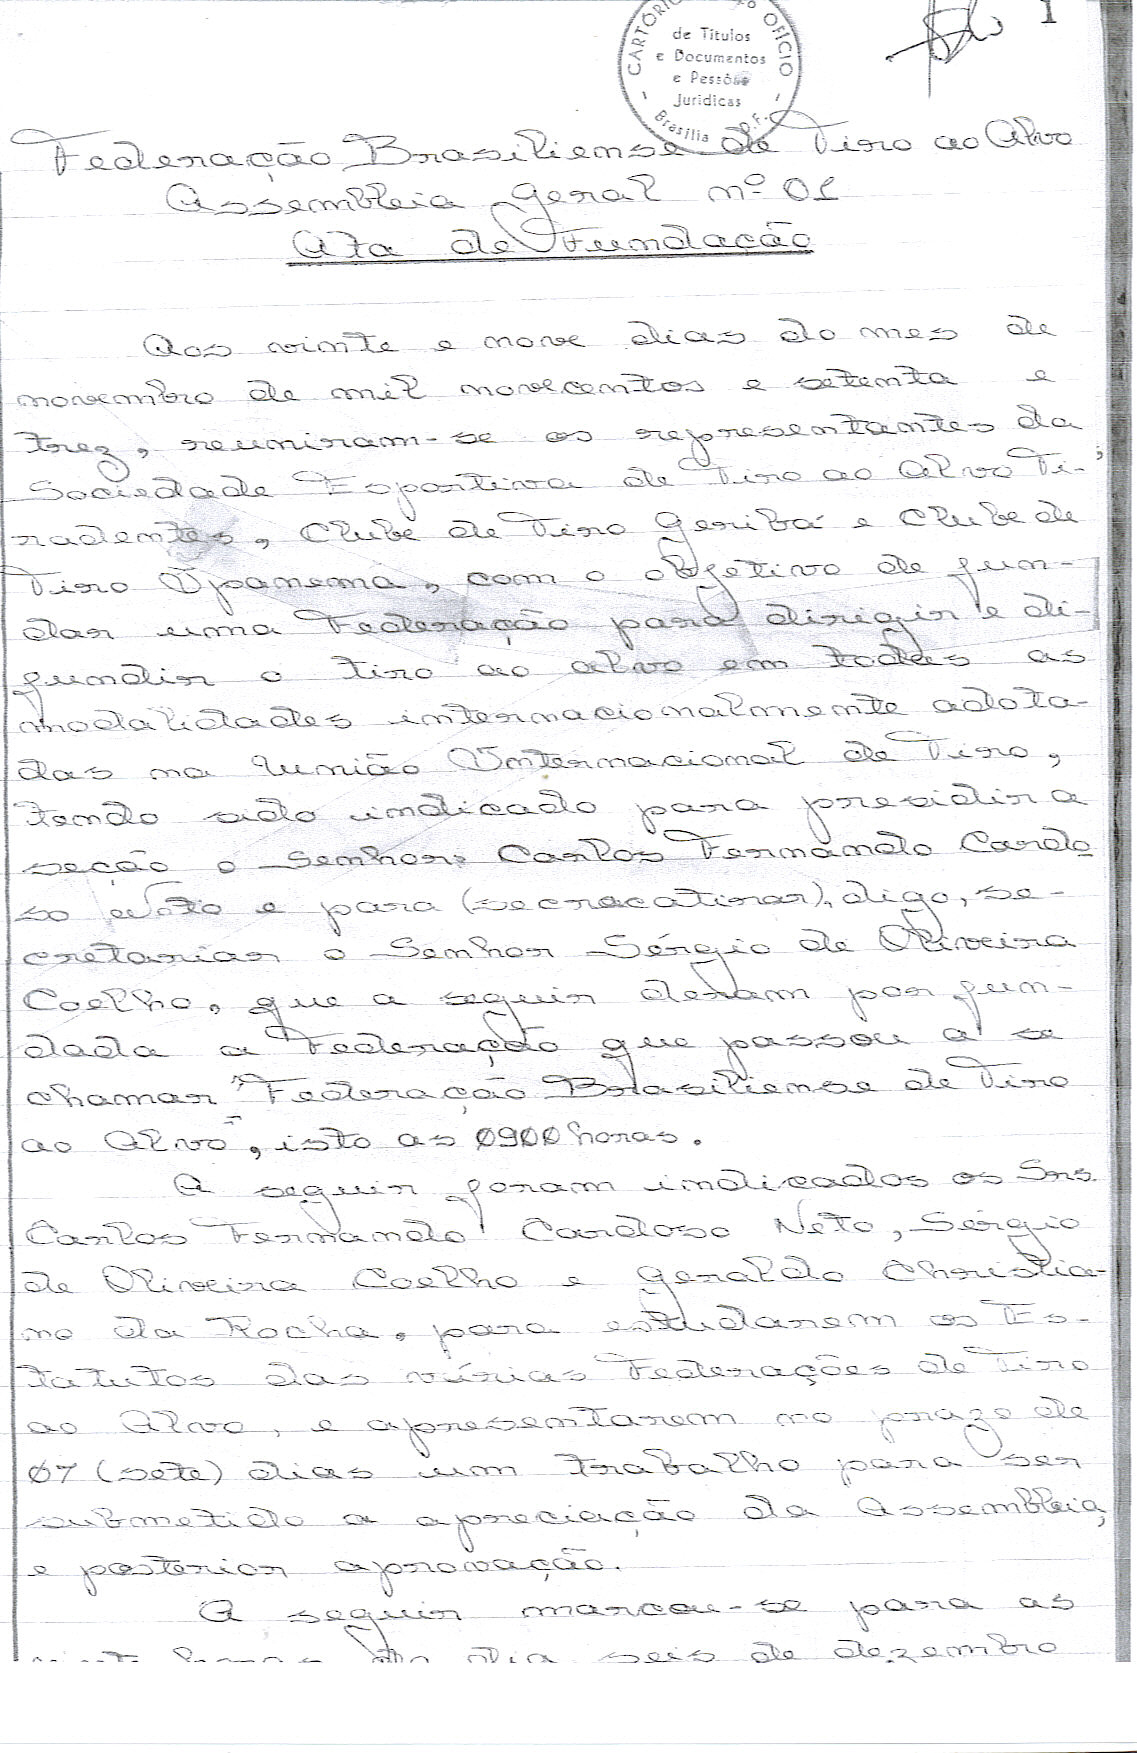 1
CARTÓRIO OFÍCIO
de Títulos
e Documentos
e Pessôas
Jurídicas
Brasília D.F.
Federação Brasiliense de Tiro ao Alvo
Assembleia Geral nº 01
Ata de Fundação
Aos vinte e nove dias do mes de
novembro de mil novecentos e setenta e
trez, reuniram-se os representantes da
Sociedade Esportiva de Tiro ao Alvo Ti-
radentes, Clube de Tiro Geribá e Clube de
Tiro Ypanema, com o objetivo de fun-
dar uma Federação para dirigir e di-
fundir o tiro ao alvo em todas as
modalidades internacionalmente adota-
das na União Internacional de Tiro,
tendo sido indicado para presidir a
seção o Senhor: Carlos Fernando Cardo
so Neto e para (secracatirar), digo, se-
cretariar o Senhor Sérgio de Oliveira
Coelho, que a seguir deram por fun-
dada a Federação que passou a se
chamar "Federação Brasiliense de Tiro
ao Alvo", isto as 0900 horas.
A seguir foram indicados os Snrs.
Carlos Fernando Cardoso Neto, Sérgio
de Oliveira Coelho e Geraldo Christia-
no da Rocha, para estudarem os Es-
tatutos das várias Federações de Tiro
ao Alvo, e apresentarem no prazo de
07 (sete) dias um trabalho para ser
submetido a apreciação da Assembleia,
e posterior aprovação.
A seguir marcou-se para as
vinte horas do dia seis de dezembro